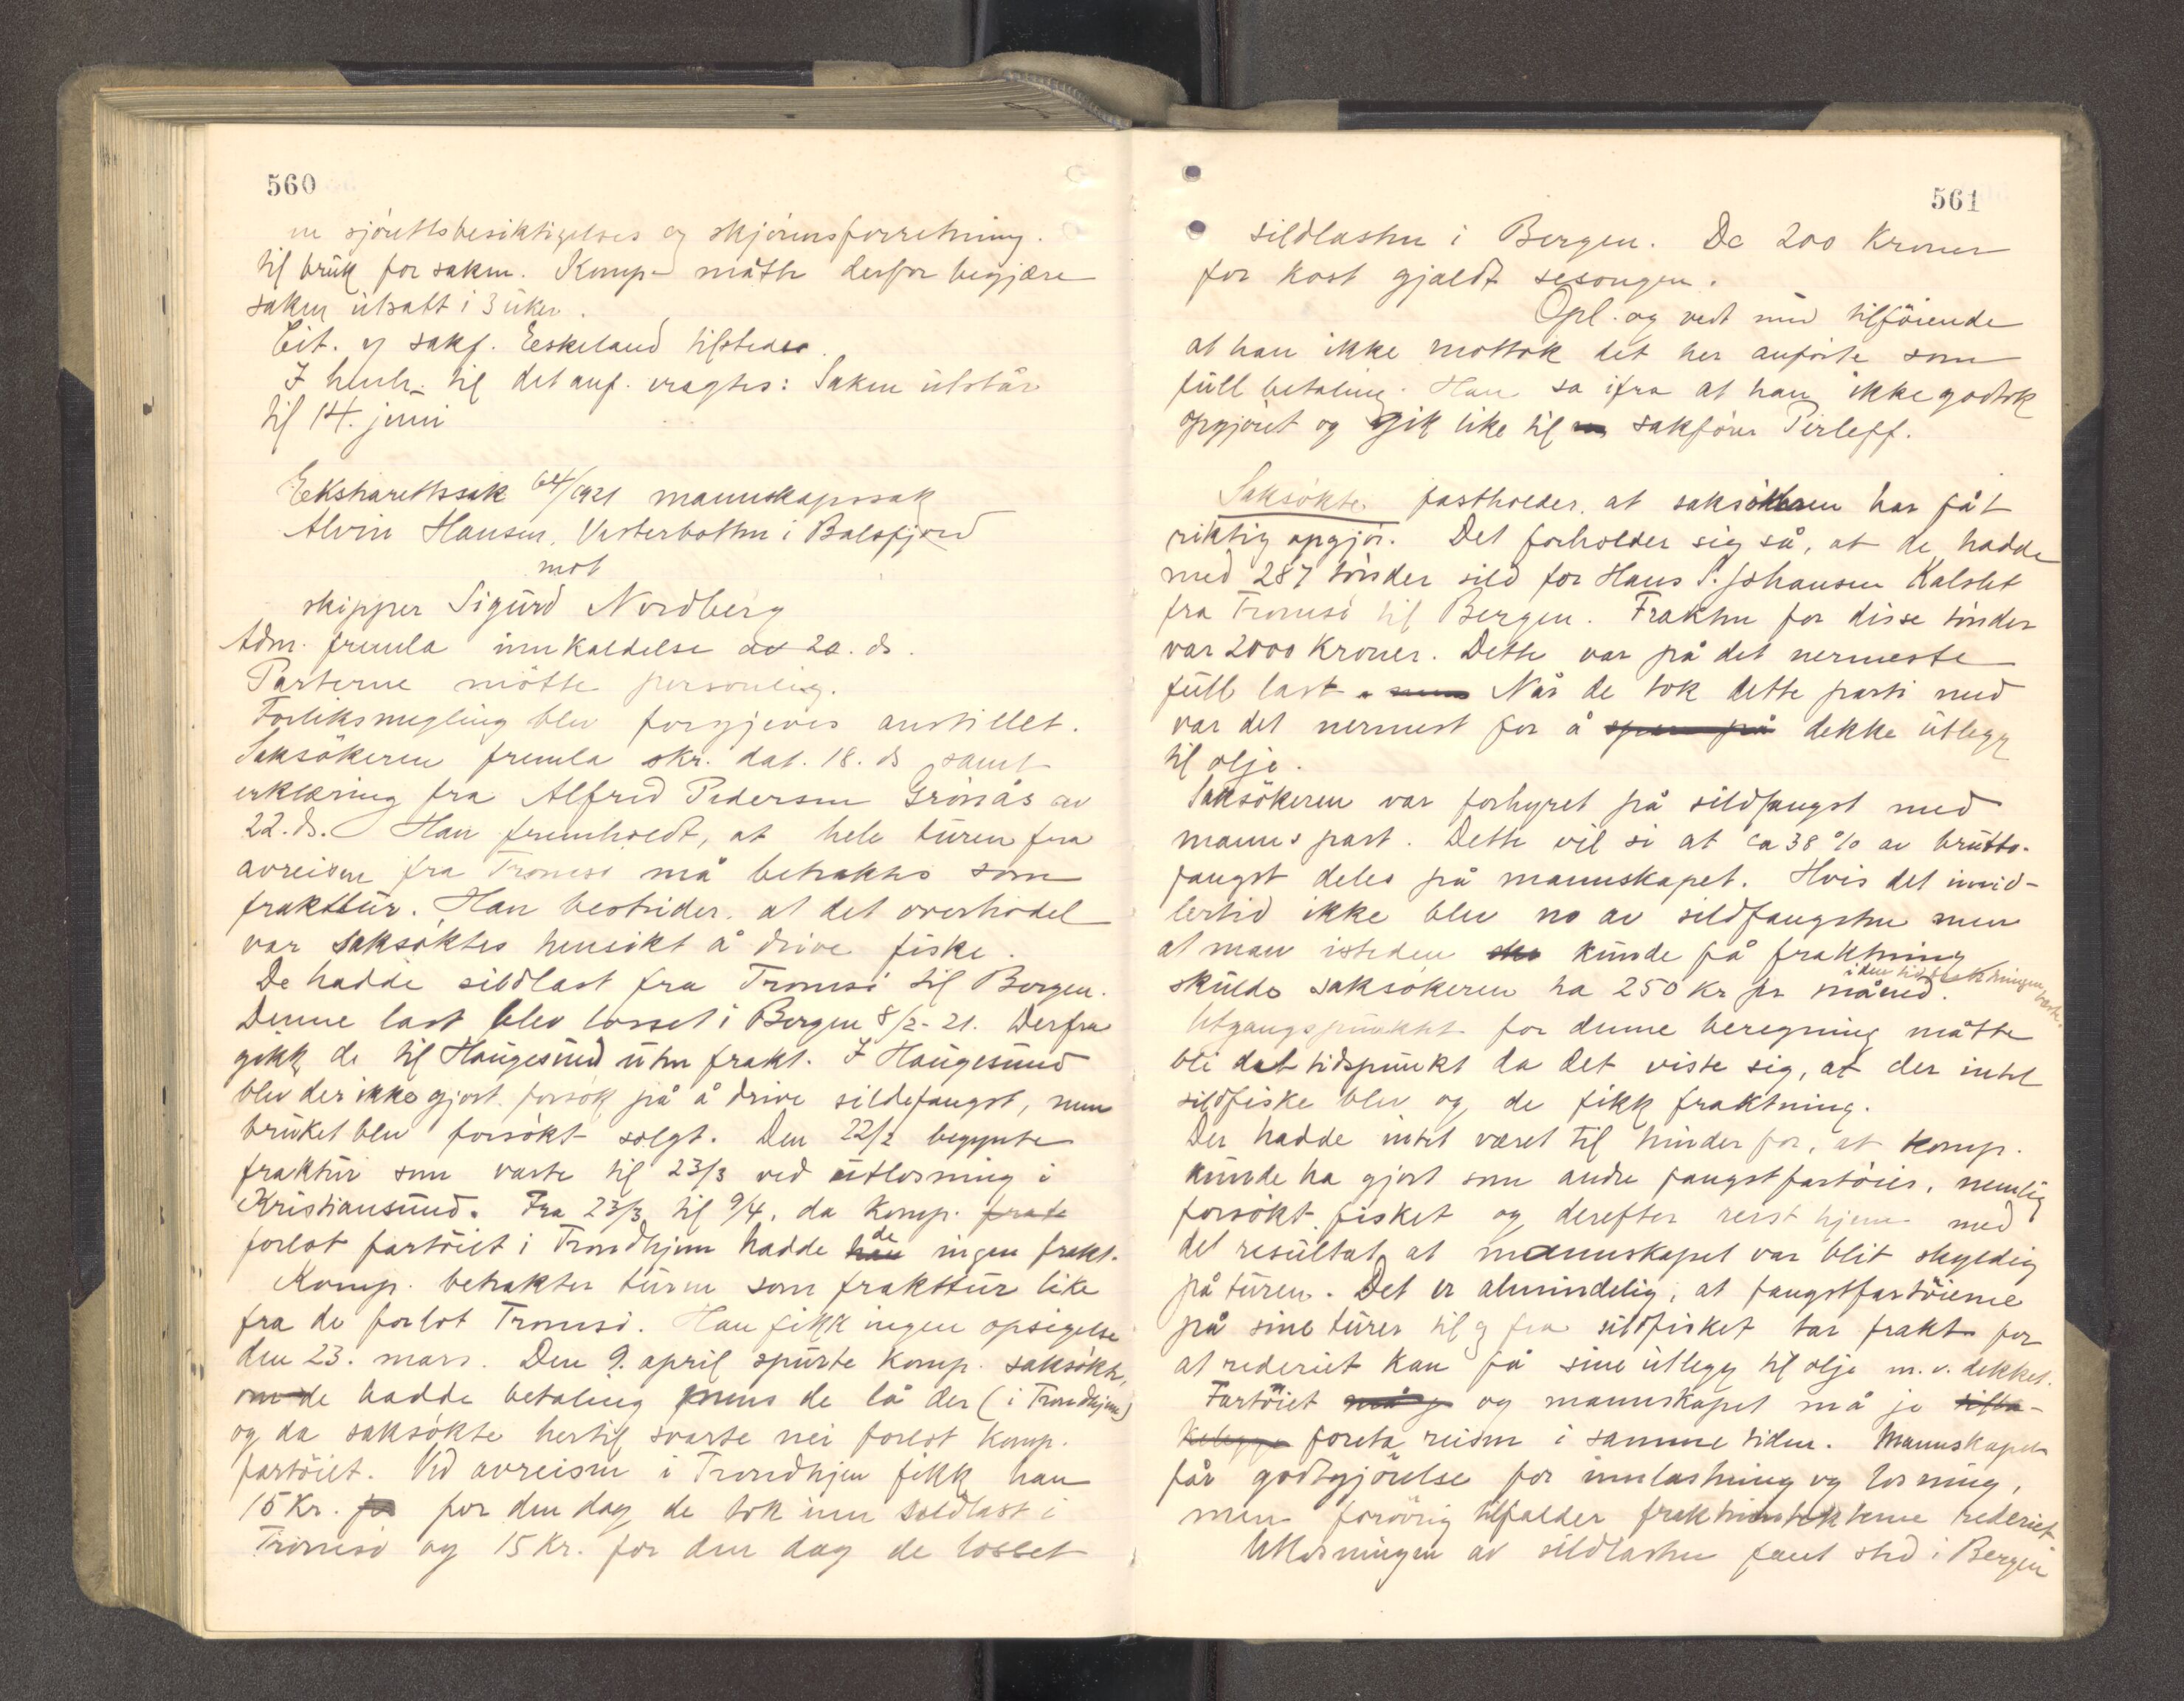 560
en sjörettsbesiktigelses og skjönsforretning.
til bruk for saken. Komp. måtte derfor begjære
saken utsatt i 3 uker.
Cit. og sakf. Eeskeland tilstede.
I henh. til det anf. vragtes: Saken utstår
til 14. juni
Ekstrarettssak 64/1921 mannskapssak
Alvin Hansen, Vesterbotten i Balsfjord
mot
skipper Sigurd Nordberg
Adm. fremla innkaldelse av 20. ds.
Parterne mötte personlig.
Forliksmegling blev forgjeves anstillet.
Saksökeren fremla skr. dat. 18. ds samt
erklæring fra Alfred Pedersen Grönås av
22. ds. Han fremholdt, at hele turen fra
avreisen fra Tromsö må betraktes som
frakttur. Han bestrider, at det overhodet
var saksöktes hensikt å drive fiske.
De hadde sildlast fra Tromsö til Bergen.
Denne last blev losset i Bergen 8/2-21. Derfra
gikk de til Haugesund uten frakt. I Haugesund
blev der ikke gjort forsök på å drive sildefangst, men
bruket blev forsökt solgt. Den 22/2 begynte
fraktur som varte til 23/3 ved utlosning i
Kristiansund. Fra 23/3 til 9/4, da komp. frate
forlot fartöiet i Trondhjem hadde han de ingen frakt.
Komp. betrakter turen som frakttur like
fra de forlot Tromsö. Han fikk ingen opsigelse
den 23. mars. Den 9. april spurte komp. saksökte,
om de hadde betaling mens de lå der (i Trondhjem)
og da saksökte hertil svarte nei forlot komp.
fartöiet. Ved avreisen i Trondhjem fikk han
15 Kr. for den dag de tok inn sildlast i
Tromsö og 15 Kr. for den dag de losset
561
sildlasten i Bergen. De 200 kroner
for kost gjaldt sesongen.
Opl. og vedt med tilföiende
at han ikke mottok det her anförte som
full betaling. Han sa ifra at han ikke godtok
opgjöret og gik like til sakförer Pirleff.
Saksökte fastholder, at saksökeren har fåt
riktig opgjör. Det forholder sig så, at de hadde
med 287 tönder sild for Hans S. Johansen Kalslet
fra Tromsö til Bergen. Frakten for disse tönder
var 2000 kroner. Dette var på det nermeste
full last. Når de tok dette parti med
var det nermest for å spare på dekke utlegg
til olje.
Saksökeren var forhyret på sildfangst med
manns part. Dette vil si at ca 38 % av brutto-
fangst deles på mannskapet. Hvis det imid-
lertid ikke blev no av sildfangsten men
at man isteden kunde få fraktning
i den tid fraktningen varte.
skulde saksökeren ha 250 kr pr måned.
Utgangspunktet for denne beregning måtte
bli det tidspunkt da det viste sig, at der intet
sildfiske blev og de fikk fraktning.
Der hadde intet været til hinder for, at komp.
kunde ha gjort som andre fangstfartöier, nemlig
forsökt fisket og derefter reist hjem med
det resultat at mannskapet var blit skyldig
på turen. Det er almindelig, at fangstfartöiene
på sine turer til og fra sildfisket tar frakt for
at rederiet kan få sine utlegg til olje m. v. dekket.
Fartöiet må j og mannskapet må jo tilba-
kelegge foreta reisen i samme tiden. Mannskapet
får godtgjörelse for innlastning og losning,
men forövrig tilfalder fraktinntektene rederiet
Utlosningen av sildlasten fant sted i Bergen